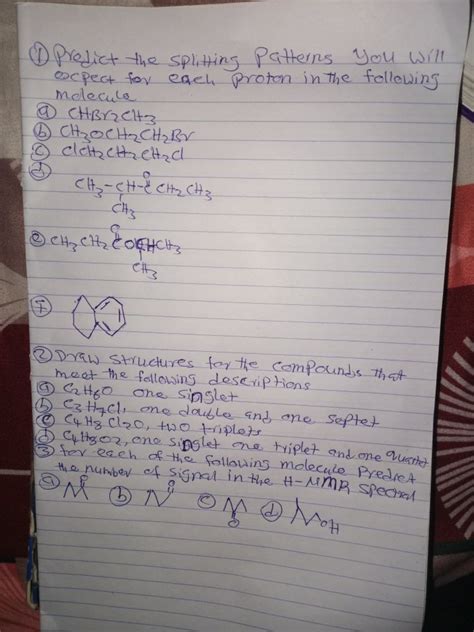 ① Predict the splitting Patterns you will
expect for each proton in the following
molecule
ⓐ CHBr2CH3
ⓑ CH3OCH2CH2Br
ⓒ ClCH2CH2CH2Cl
ⓓ
O
CH3-CH-C CH2CH3
CH3
O
ⓔ CH3CH2COCHCH3
CH3
Ⓕ
② Draw structures for the compounds that
meet the following descriptions
ⓐ C2H6O one singlet
ⓑ C3H7Cl, one double and one septet
ⓒ C4H8Cl2O, two triplets
ⓓ C4H8O2, one singlet one triplet and one quartet
③ for each of the following molecule Predict
the number of signal in the H-NMR spectral
ⓐ O ⓑ O ⓒ O ⓓ OH